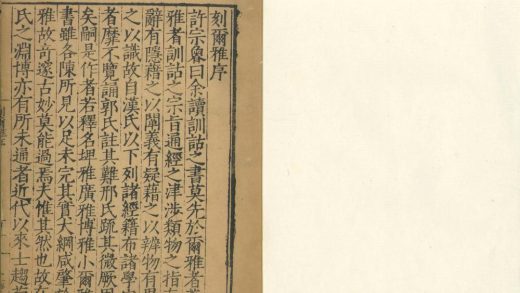 刻爾雅序
許宗魯曰余讀訓詁之書莫先於爾雅者
雅者訓詁之宗旨通經之津涉類物之指
辭有隱藉之以闡義有疑藉之以辨物有
之以識故自漢氏以下列諸經籍布諸學
者靡不覽誦郭氏註其難邢氏疏其微厥
矣嗣是作者若釋名埤雅廣雅博雅小爾
書雖各陳所見以足未完其實大綱咸肇
雅故奇邃古妙莫能過焉夫惟其然也故
氏之淵博亦有所未通者近代以來士趨